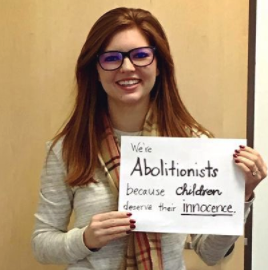 We're
Abolitionists
because children
deserve their innocence.